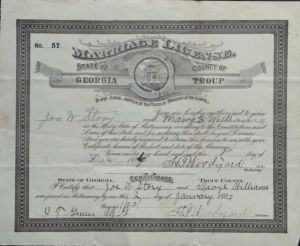 No. 57
MARRIAGE LICENSE.
STATE OF COUNTY OF
GEORGIA TROUP
To any Judge, Justice of the Peace or Minister of the Gospel:
You are hereby authorized to join
Joe W. Story and Mayye Williams
in the Holy State of Matrimony according to the Constitution and
Laws of this State and for so doing this shall be your License
And you are hereby required to return this License to me with your
Certificate hereon of the fact and date of the Marriage.
Given under my hand and seal this day of
Dec
State of Georgia, CERTIFICATE Troup County.
I Certify that Joe W. Story and Mayye Williams
were joined in Matrimony by me this 2 day of January 1927